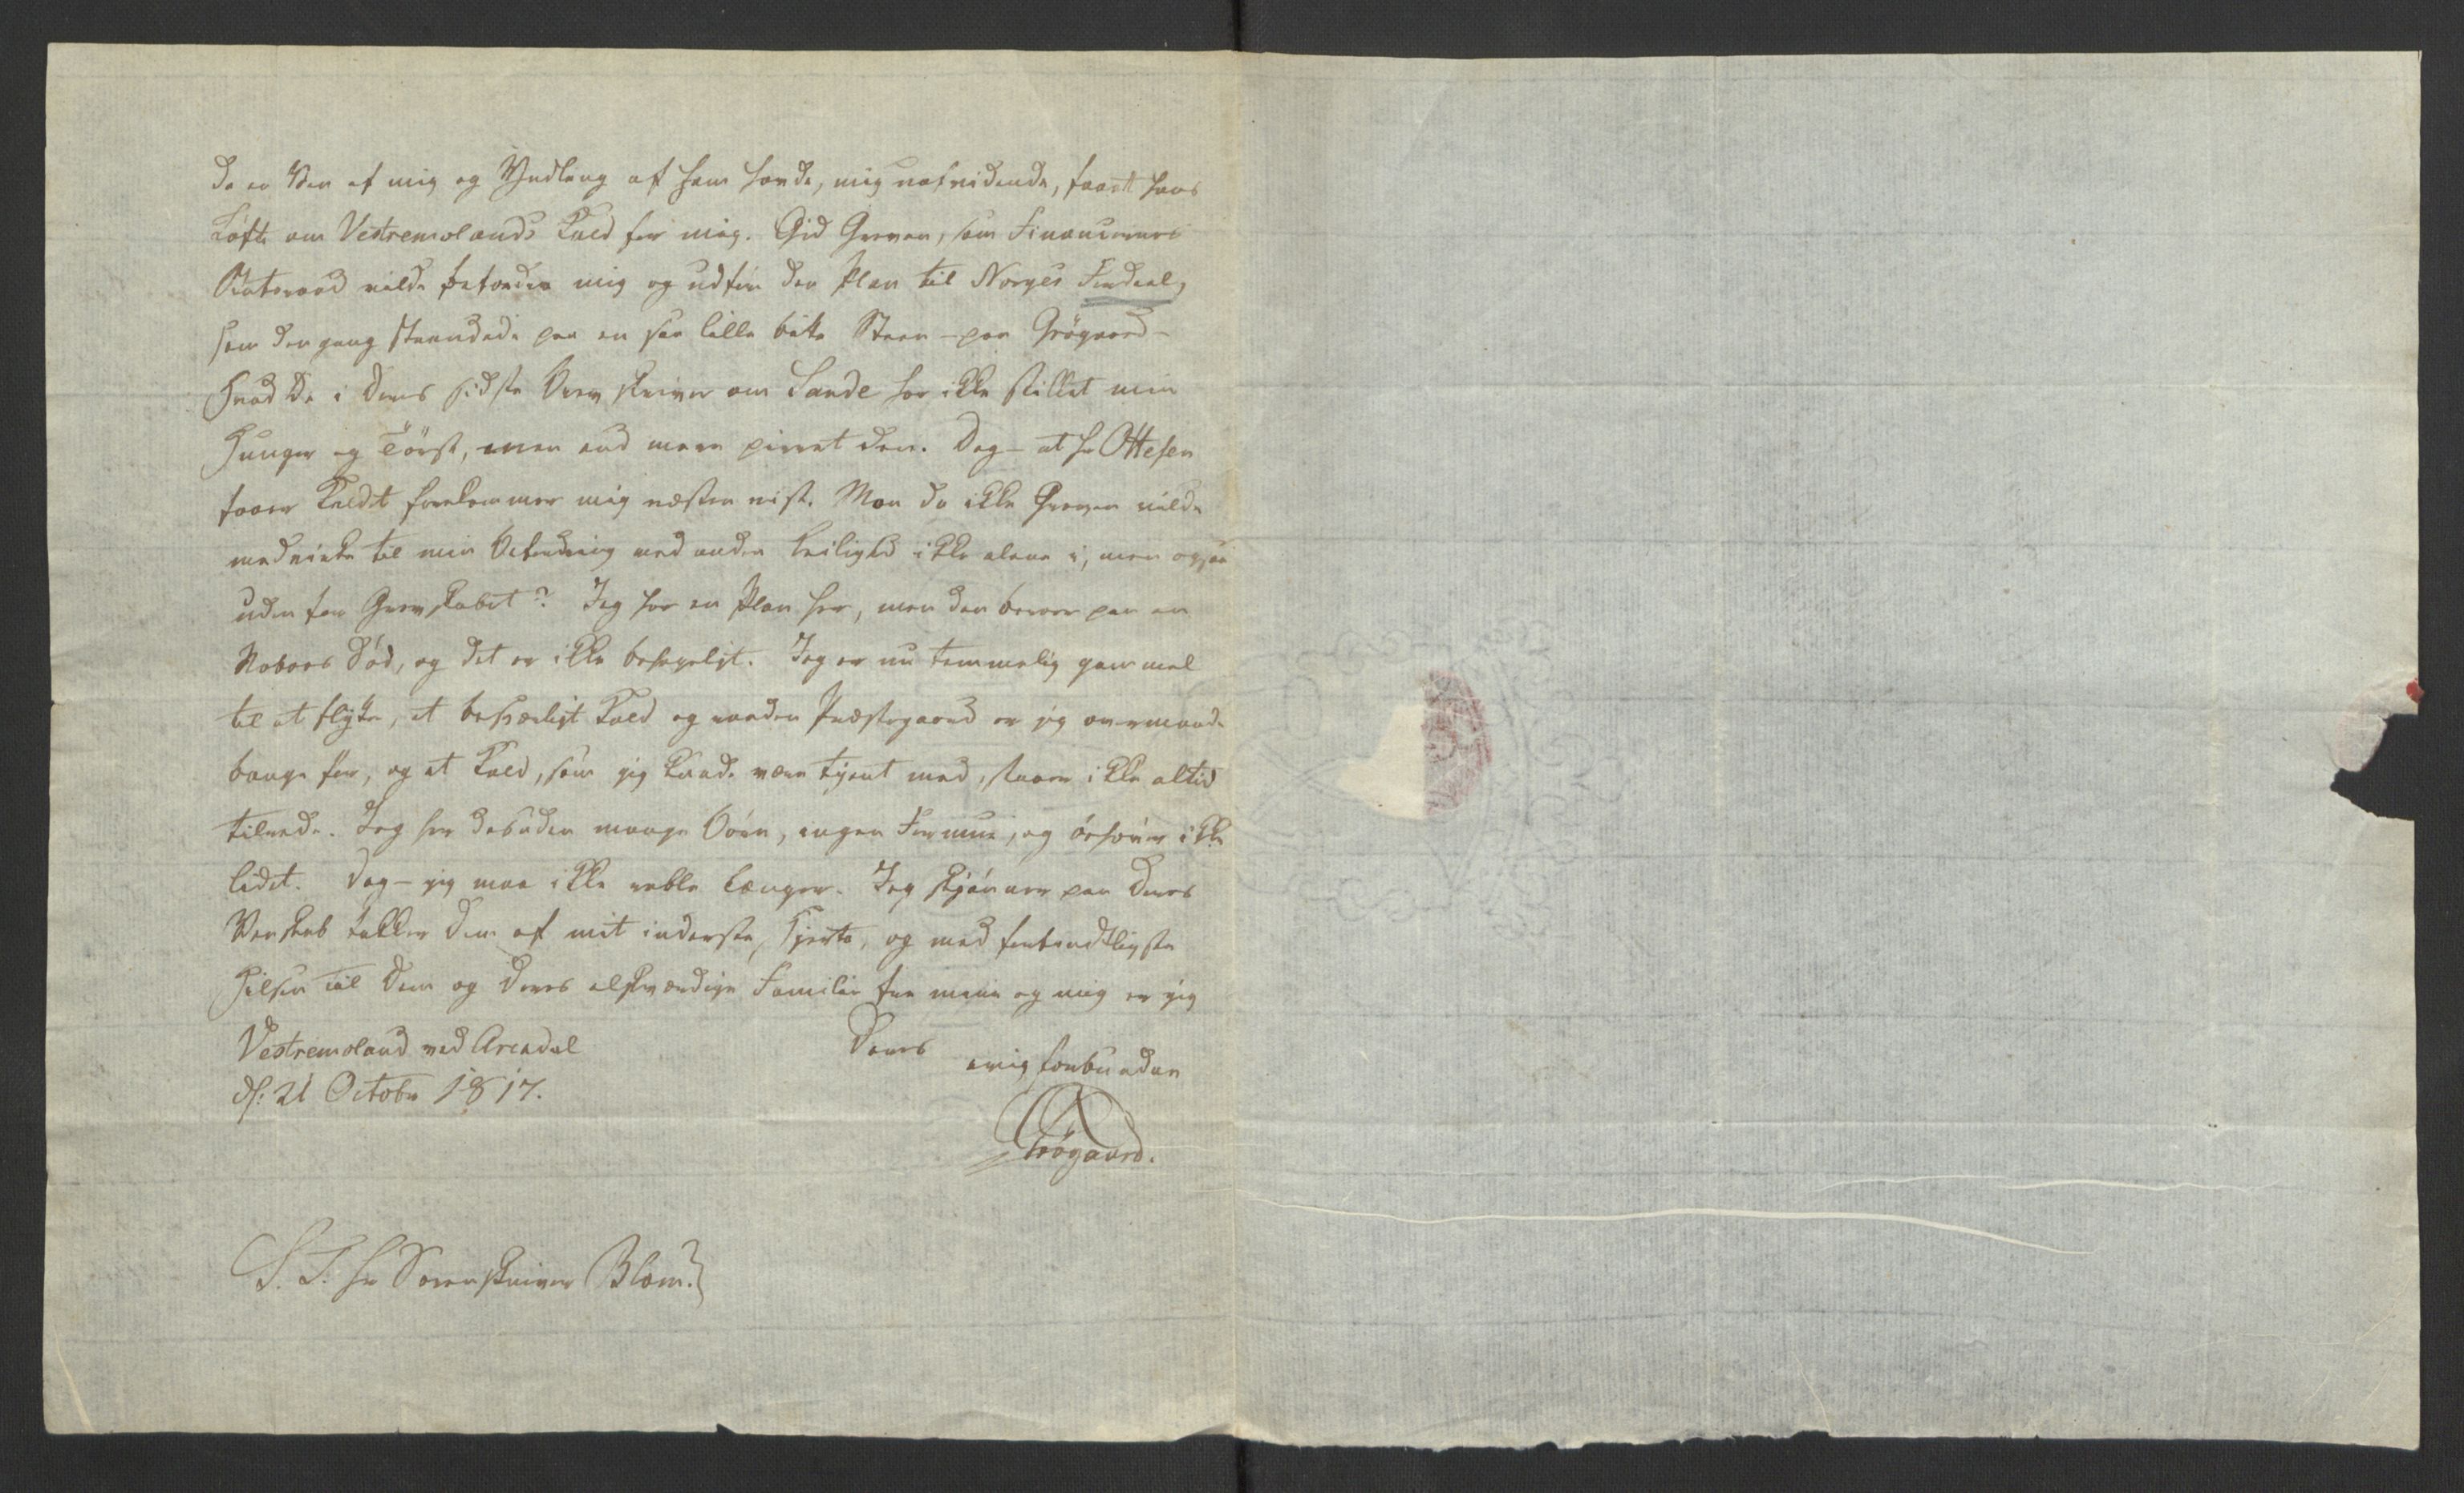 da en Ven af mig og Yndling af ham havde, mig uafvidende, faaet hans
Løfte om Vestremolands Kald for mig. Gid Greven, som Financernes
Statsraad vilde befordre mig og udføre den Plan til Norges Fordeel,
som den gang strandede paa en saa lille bitte Steen – paa Grøgaard –
Hvad De i Deres sidste Brev skriver om Sande har ikke stillet min
Hunger og Tørst, men end mere pirret den. Dog – at Hr Ottesen
faaer Kaldet forekommer mig næsten vist. Mon da ikke Greven vilde
medvirke til min Befordring ved anden Leilighed ikke alene i, men ogsaa
uden for Grevskabet? Jeg har en Plan her, men den beroer paa en
Naboes Død, og det er ikke behageligt. Jeg er nu temmelig gammel
til at flytte, et besværligt Kald og raaden Præstegaard er jeg overmaade
bange for, og et Kald, som jeg kunde være tjent med, staaer ikke altid
tilrede. Jeg har desuden mange Børn, ingen Formue, og behøver ikke
lidet. Dog – jeg maa ikke rable længer. Jeg skjønner paa Deres
Venskab takker Dem af mit inderste Hjerte, og med forbindtligste
Hilsen til Dem og Deres elskværdige Familie fra mine og mig er jeg
Deres
Vestremoland ved Arendal
evig forbundne
d: 21 Octobr 1817.
Grøgaard.
S. T. Hr Sorenskriver Blom.